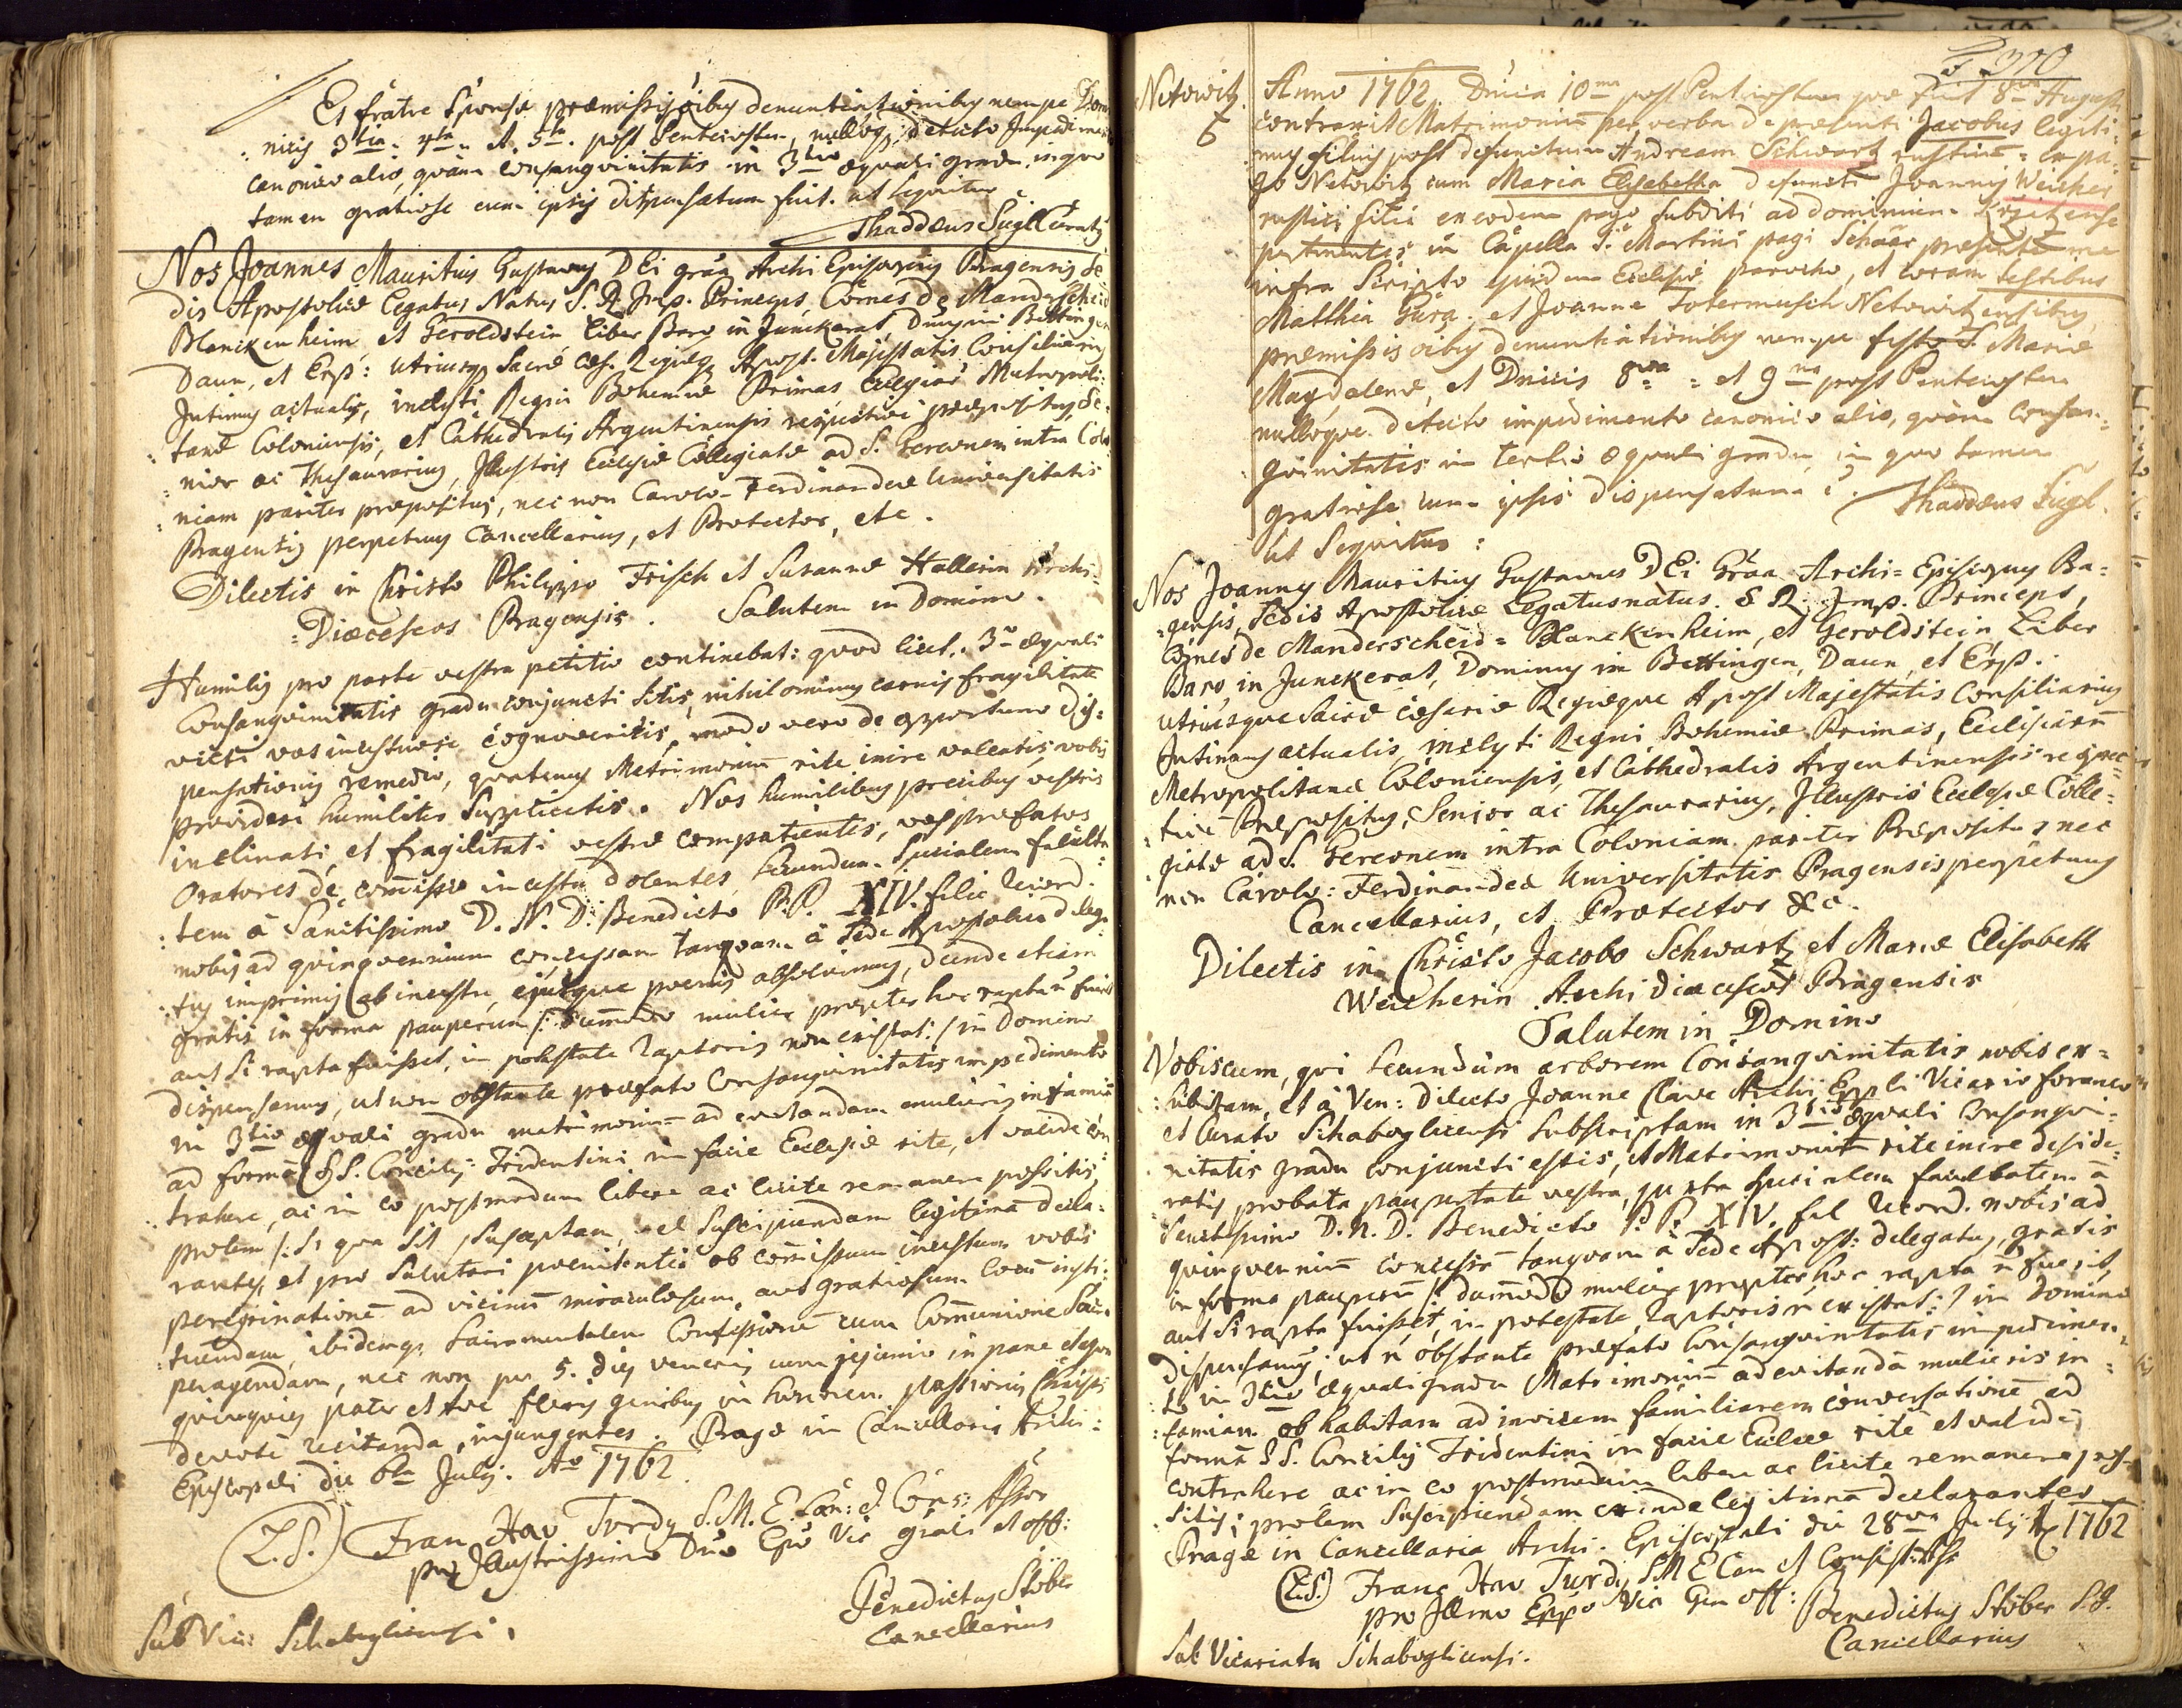 Et fratre Sponsæ præmissis oibus denuntiationibus nempe Dom
nicis 3tia. 4ta. et 5ta. post Pentecosten, nullogs detecto Impedime
canonico alio, quam consanguinitatis in 3tio æquali gradu. in quo
tamen gratiose cum ipsis dispensatum fuit. ut sequitur
Thaddæus Siegl Curatus
Nos Joannes Mauritius Gustavus DEi gråa Archi Episcopus Pragensis Se
dis Apostolicæ Legatus Natus S. R. Imp. Princeps, Comes de Manderscheid
Blanckenheim, et Geroldstein, Liber Baro in Junckerat, Dnus in Bettingen
Daun, et Erp: utriusq Sacræ Cæs. Regiæq Apost. Majestatis Consiliarius
Intimus actualis, inclyti Regni Bohemiæ Primas, Ecclesiar Metropoli:
tanæ Coloniensis, et Cathedralis Argentinensis respective præpositus, Se:
nior ac Thesaurarius, Illustris Ecclesiæ Collegiatæ ad S. Gereonem intra Colo
niam pariter præpositus, nec non Carolo-Ferdinandeæ Universitatis
Pragensis perpetuus Cancellarius, et Protector, etc.
Dilectis in Christo Philippo Frisch et Susannæ Hallerin Archi:
Diœceseos Pragensis. Salutem in Domino.
Humilis pro parte vestra petitio continebat: quod licet. 3o æquali
Consanguinitatis gradu conjuncti sitis, nihilominus carnis fragilitate
victi vos incestuose cognoveritis, modo vero de opportuno dis:
pensationis remedio, quatenus Matrimonium rite inire valeatis, vobis
provideri humiliter Supplicatis. Nos humilibus precibus vestris
inclinati, et fragilitati vestræ compatientes, vos præfatos
Oratores de commisso incestu dolentes, secundum Specialem faculta
tem à Sanctissimo D. N. D. Benedicto P.P. XIV. felic. record.
nobis ad quinquennium concessam tanquam à Sede Apostolica delega
tus imprimis ab incestu, ejusque pœnis absolvimus, deinde etiam
gratis in forma pauperum /: dummodo mulier propter hoc rapta n fuerit
aut si rapta fuisset, in potestate raptoris non existat: / in Domino
dispensamus, ut non obstante præfato Consanguinitatis impedimento
in 3tio æquali gradu matrimonium ad evitandam mulieris infamiam
ad formã S. S. Concilij Tridentini in facie Ecclesiæ rite, et valide con
trahere, ac in eo postmodum libere ac licite remanere possitis,
prolem /: si qua sit / susceptam, vel suscipiendam legitimã decla:
rantes, et pro Salutari pœnitentia ob commissum incestum vobis
peregrinationẽ ad vicinũ miraculosum, aut gratiosum locũ insti:
tuendam, ibidemqs Sacramentalem Confessionẽ cum Communione Sac
peragendam, nec non per 5. dies veneris cum jejunio in pane et aqua
quinquies pater et Ave flexis genibus in honorem passionis Christi
devote recitanda, injungentes. Pragæ in Cancellaria Archi:
Episcopali die 6ta July. Ao 1762.
(L.S.) Fran. Xav Twrdy S.M.E. Can: et Cons: Assor
pro Illustrissimo Dno Epo Vic grali et off:
Benedictus Stöber
Cancellarius
Sub Vic: Schabogliensi.
F 370
Netowitz.
6
Anno 1762. Dnica 10ma post Pentecosten quæ fuit 8va Augusti
contraxit Matrimoniũ per verba de præsenti Jacobus legiti:
mus filius post defunctum Andream Schwartz rusticũ ex pa:
go Netowitz cum Maria Elisabetha defuncti Joannis Weicher
rustici filia ex eodem pago subditi ad dominium
pertinentes in Capella S. Martini pagi Schaar præsente me
infra Scripto ejusdem Ecclesiæ parocho, et coram testibus
Matthia Gura. et Joanne Totermusch Netowitzensibus,
præmissis oibus denuntiationibus nempe festo S. Mariæ
Magdalenæ, et Dnicis 8va et 9na post Pentecosten
nulloque detecto impedimento canonico alio, quàm Consan:
guinitatis in tertio æquali gradu, in quo tamen
gratiose cum ipsis dispensatum ẽ.
Thaddæus Siegl.
ut Sequitur:
Nos Joannes Mauritius Gustavus DEi Gråa Archi-Episcopus Pa:
gensis, Sedis Apostolicæ Legatus natus. S R Imp. Princeps,
Comes de Manderscheid=Blanckenheim, et Geroldstein, Liber
Baro in Junckerat, Dominus in Bettingen, Daun, et Erp.
utriusque Sacræ Cæsareæ Regiæque Apost Majestatis Consiliarius
Intimus actualis, inclyti Regni Bohemiæ Primas, Ecclesiarũ
Metropolitanæ Coloniensis, et Cathedralis Argentinensis respec
tive Præpositus, Senior ac Thesaurarius, Illustris Ecclesiæ Colle:
giatæ ad S. Gereonem intra Coloniam pariter Præpositus nec
non Carolo: Ferdinandeæ Universitatis Pragensis perpetuus
Cancellarius, et Protector &c.
Dilectis in Christo Jacobo Schwartz et Mariæ Elisabeth
Weicherin Archi Diœceseos Pragensis
Salutem in Domino
Vobiscum, qui secundùm arborem Consanguinitatis nobis ex=
hibitam, et à Ven: dilecto Joanne Clave Archi Eppli Vicario foraneo
et Curato Schabogliensi subscriptam in 3tio æquali Consangui:
nitatis gradu conjuncti estis, et Matrimoniũ rite inire deside:
ratis probata paupertate vestra, juxta specialem facultatem à
Sanctissimo D. N. D. Benedicto P. P. XIV. fel record. nobis ad
quinquenniũ concessã tanquam à Sede Apost: delegatus, gratis
in forma pauperũ /: dummodo mulier propter hoc rapta ñ fuerit,
aut si rapta fuisset, in potestate raptoris ñ existat: / in Domino
dispensamus, ut ñ obstante præfato Consanguinitatis impedimen
to in 3tio æquali gradu Matrimoniũ ad evitandã mulieris in:
famiam ob habitam ad invicem familiarem conversationẽ ad
formã S S. Concilij Tridentini in facie Ecclæ rite et valide
contrahere ac in eo postmodum libere ac licite remanere pos=
sitis; prolem suscipiendam exinde legitimã declarantes.
Pragæ in Cancellaria Archi-Episcopali die 28va July Ao 1762
(L.S.) Franc Xav Twrdy S M E Can et Consist: Assr
pro Illmo Eppo Vic Gen off:
Benedictus Stöber S.J.
Cancellarius
Sub Vicariatu Schabogliensi.